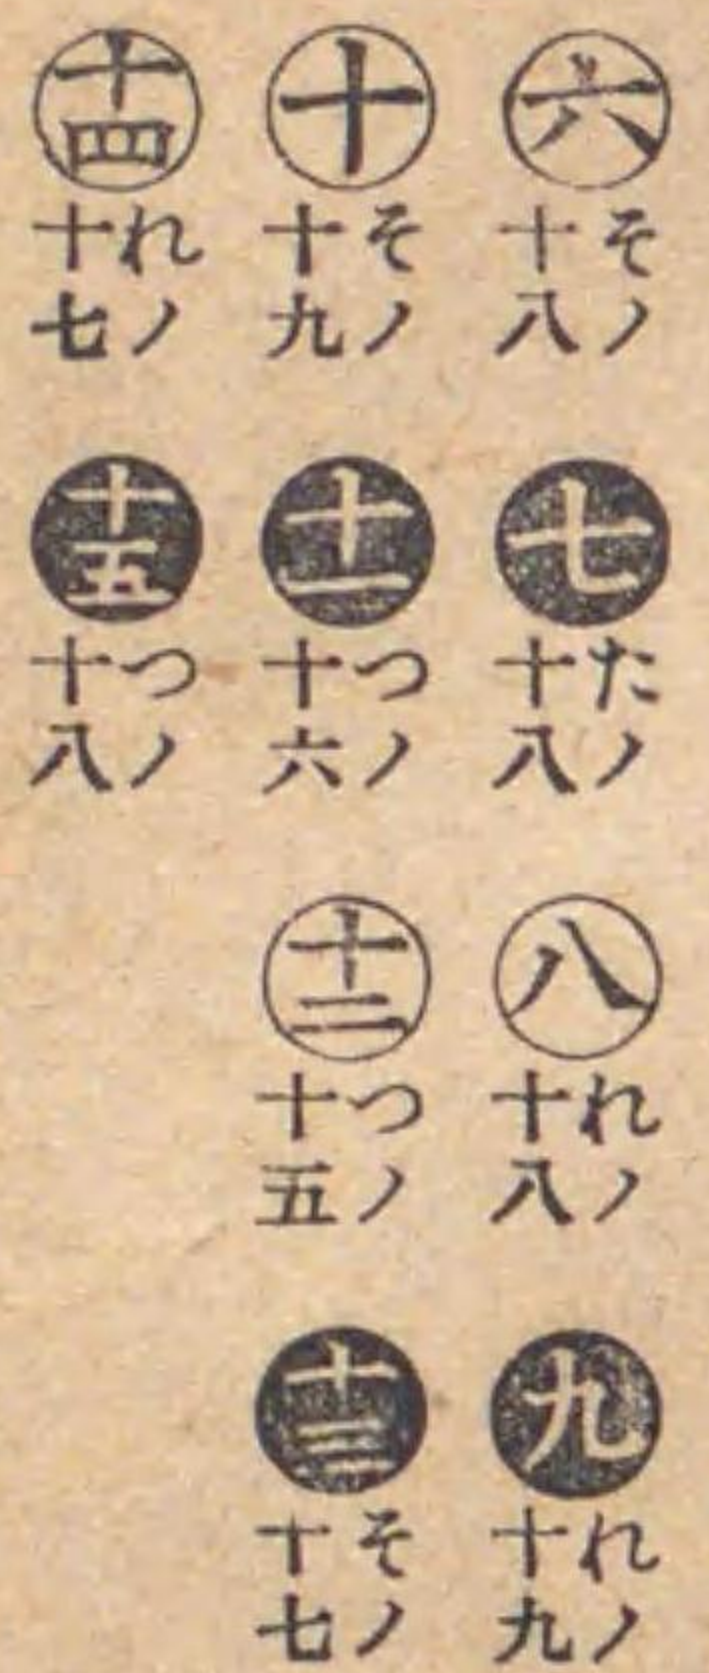 六
そノ
十八
七
たノ
十八
八
れノ
十八
九
れノ
十九
十
そノ
十九
十一
つノ
十六
十二
つノ
十五
十三
そノ
十七
十四
れノ
十七
十五
つノ
十八